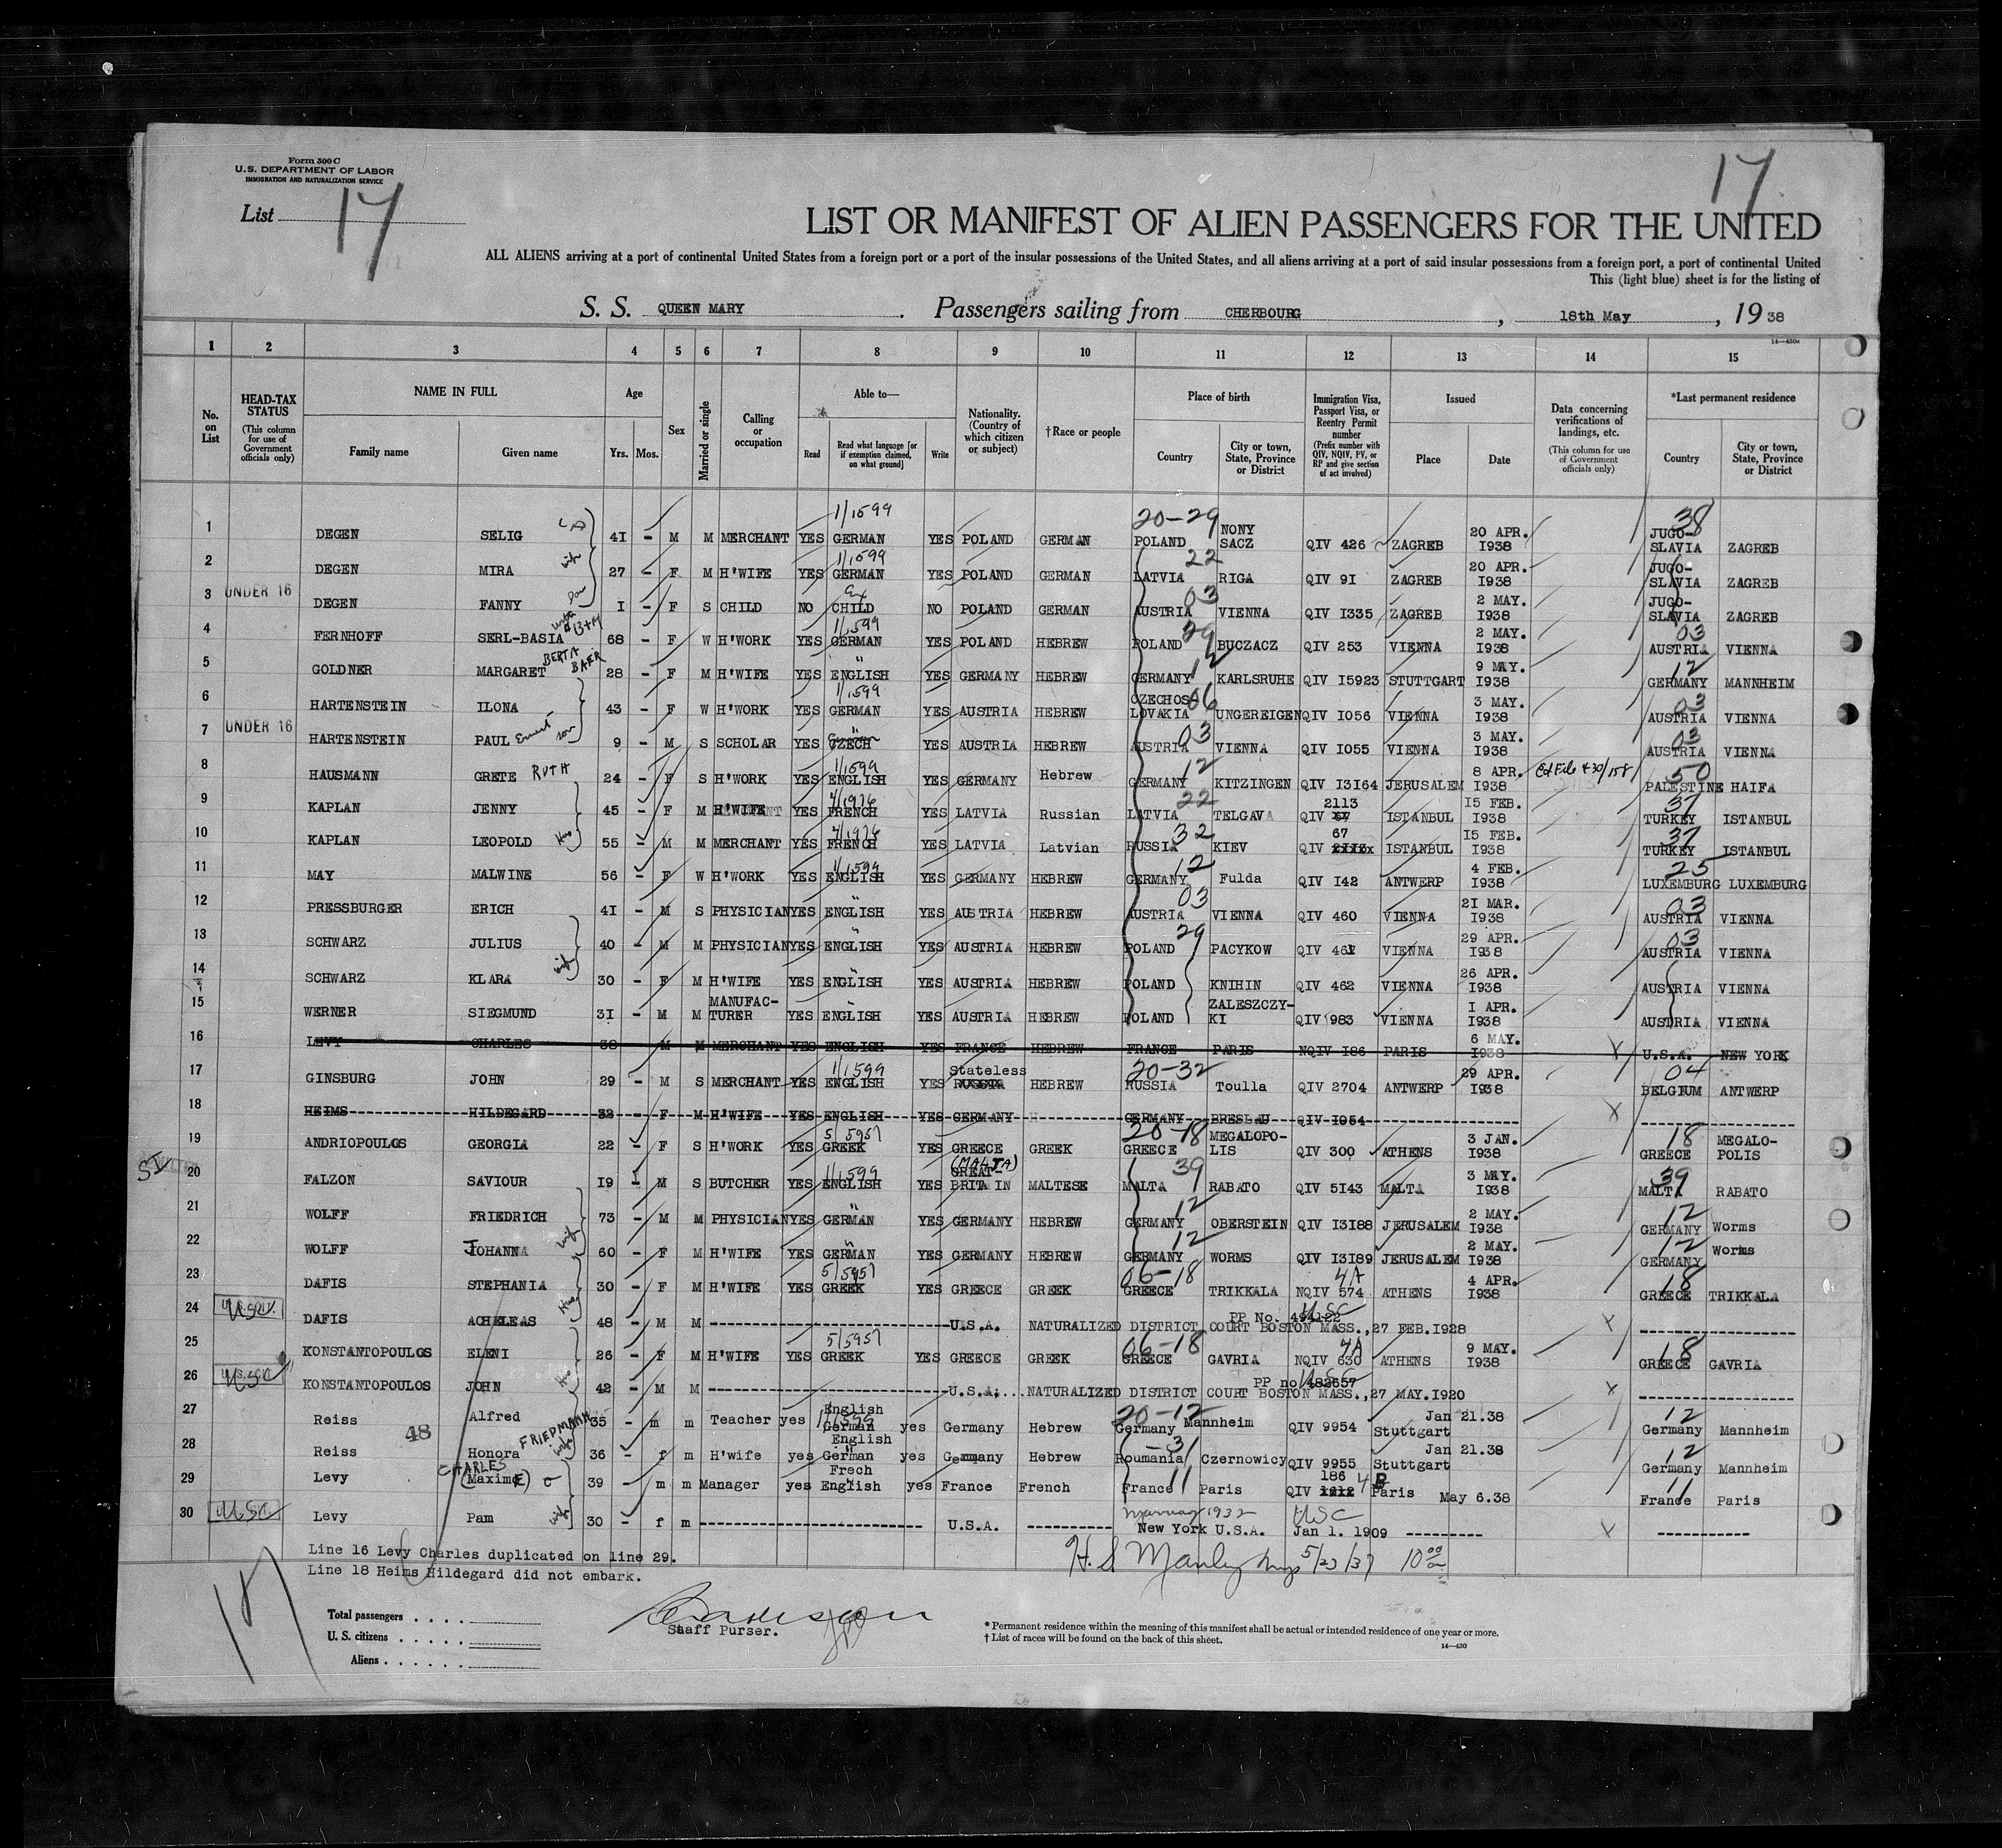 Form 500 C
U.S. DEPARTMENT OF LABOR
IMMIGRATION AND NATURALIZATION SERVICE
List 17
17
LIST OR MANIFEST OF ALIEN PASSENGERS FOR THE UNITED
ALL ALIENS arriving at a port of continental United States from a foreign port or a port of the insular possessions of the United States, and all aliens arriving at a port of said insular possessions from a foreign port, a port of continental United
This (light blue) sheet is for the listing of
S. S. QUEEN MARY. Passengers sailing from CHERBOURG, 18th May, 19 38
14—430a
1 2 3 4 5 6 7 8 9 10 11 12 13 14 15
No. on List
HEAD-TAX STATUS (This column for use of Government officials only)
NAME IN FULL Family name Given name
Age Yrs. Mos.
Sex
Married or single
Calling or occupation
Able to— Read Read what language [or if exemption claimed, on what ground] Write
Nationality. (Country of which citizen or subject)
†Race or people
Place of birth Country City or town, State, Province or District
Immigration Visa, Passport Visa, or Reentry Permit number (Prefix number with QIV, NQIV, PV, or RP and give section of act involved)
Issued Place Date
Data concerning verifications of landings, etc. (This column for use of Government officials only)
*Last permanent residence Country City or town, State, Province or District
1 DEGEN SELIG 41 - M M MERCHANT YES 1/1599 GERMAN YES POLAND GERMAN 20-29 POLAND NONY SACZ QIV 426 ZAGREB 20 APR. 1938 38 JUGO-SLAVIA ZAGREB
2 DEGEN MIRA wife 27 - F M H'WIFE YES 1/1599 GERMAN YES POLAND GERMAN 22 LATVIA RIGA QIV 91 ZAGREB 20 APR. 1938 JUGO-SLAVIA ZAGREB
3 UNDER 16 DEGEN FANNY 1 - F S CHILD NO CHILD NO POLAND GERMAN 03 AUSTRIA VIENNA QIV 1335 ZAGREB 2 MAY. 1938 JUGO-SLAVIA ZAGREB
4 FERNHOFF SERL-BASIA 68 - F W H'WORK YES 1/1599 GERMAN YES POLAND HEBREW 29 POLAND BUCZACZ QIV 253 VIENNA 2 MAY. 1938 03 AUSTRIA VIENNA
5 GOLDNER MARGARET BERTA BAER 28 - F M H'WIFE YES " ENGLISH YES GERMANY HEBREW 12 GERMANY KARLSRUHE QIV 15923 STUTTGART 9 MAY. 1938 12 GERMANY MANNHEIM
6 HARTENSTEIN ILONA 43 - F W H'WORK YES 1/1599 GERMAN YES AUSTRIA HEBREW 06 CZECHOSLOVAKIA UNGEREIGEN QIV 1056 VIENNA 3 MAY. 1938 03 AUSTRIA VIENNA
7 UNDER 16 HARTENSTEIN PAUL Ernest son 9 - M S SCHOLAR YES CZECH YES AUSTRIA HEBREW 03 AUSTRIA VIENNA QIV 1055 VIENNA 3 MAY. 1938 03 AUSTRIA VIENNA
8 HAUSMANN GRETE RUTH 24 - F S H'WORK YES 1/1599 ENGLISH YES GERMANY Hebrew 12 GERMANY KITZINGEN QIV 13164 JERUSALEM 8 APR. 1938 50 PALESTINE HAIFA
9 KAPLAN JENNY 45 - F M H'WIFE YES 4/1976 FRENCH YES LATVIA Russian 22 LATVIA TELGAVA QIV 2113 ISTANBUL 15 FEB. 1938 37 TURKEY ISTANBUL
10 KAPLAN LEOPOLD Hus 55 - M M MERCHANT YES 4/1976 FRENCH YES LATVIA Latvian 32 RUSSIA KIEV QIV 67 ISTANBUL 15 FEB. 1938 37 TURKEY ISTANBUL
11 MAY MALWINE 56 - F W H'WORK YES 1/1599 ENGLISH YES GERMANY HEBREW 12 GERMANY Fulda QIV 142 ANTWERP 4 FEB. 1938 25 LUXEMBURG LUXEMBURG
12 PRESSBURGER ERICH 41 - M S PHYSICIAN YES " ENGLISH YES AUSTRIA HEBREW 03 AUSTRIA VIENNA QIV 460 VIENNA 21 MAR. 1938 03 AUSTRIA VIENNA
13 SCHWARZ JULIUS 40 - M M PHYSICIAN YES " ENGLISH YES AUSTRIA HEBREW 29 POLAND PACYKOW QIV 461 VIENNA 29 APR. 1938 03 AUSTRIA VIENNA
14 SCHWARZ KLARA wife 30 - F M H'WIFE YES " ENGLISH YES AUSTRIA HEBREW POLAND KNIHIN QIV 462 VIENNA 26 APR. 1938 AUSTRIA VIENNA
15 WERNER SIEGMUND 31 - M M MANUFAC-TURER YES " ENGLISH YES AUSTRIA HEBREW POLAND ZALESZCZY-KI QIV 983 VIENNA 1 APR. 1938 AUSTRIA VIENNA
16 LEVY CHARLES 38 M M MERCHANT YES ENGLISH YES FRANCE HEBREW FRANCE PARIS NQIV 186 PARIS 6 MAY. 1938 X U.S.A. NEW YORK
17 GINSBURG JOHN 29 - M S MERCHANT YES 1/1599 ENGLISH YES Stateless RUSSIA HEBREW 20-32 RUSSIA Toulla QIV 2704 ANTWERP 29 APR. 1938 04 BELGIUM ANTWERP
18 HEIMS HILDEGARD 32 - F M H'WIFE YES ENGLISH YES GERMANY GERMANY BRESLAU QIV 1054 X
19 ANDRIOPOULOS GEORGIA 22 - F S H'WORK YES 5/5957 GREEK YES GREECE GREEK 20-18 GREECE MEGALOPO-LIS QIV 300 ATHENS 3 JAN. 1938 18 GREECE MEGALO-POLIS
SI 20 FALZON SAVIOUR 19 - M S BUTCHER YES 1/1599 ENGLISH YES (MALTA) GREAT-BRITAIN MALTESE 39 MALTA RABATO QIV 5143 MALTA 3 MAY. 1938 39 MALTA RABATO
21 WOLFF FRIEDRICH 73 - M M PHYSICIAN YES " GERMAN YES GERMANY HEBREW 12 GERMANY OBERSTEIN QIV 13188 JERUSALEM 2 MAY. 1938 12 GERMANY Worms
22 WOLFF JOHANNA wife 60 - F M H'WIFE YES " GERMAN YES GERMANY HEBREW 12 GERMANY WORMS QIV 13189 JERUSALEM 2 MAY. 1938 12 GERMANY Worms
23 DAFIS STEPHANIA 30 - F M H'WIFE YES 5/5957 GREEK YES GREECE GREEK 06-18 GREECE TRIKKALA NQIV 574 4A ATHENS 4 APR. 1938 18 GREECE TRIKKALA
24 USC DAFIS ACHELEAS Hus 48 - M M U.S.A. NATURALIZED DISTRICT COURT BOSTON MASS.,27 FEB.1928 PP No. 494122 USC X
25 KONSTANTOPOULOS ELENI 26 - F M H'WIFE YES 5/5957 GREEK YES GREECE GREEK 06-18 GREECE GAVRIA NQIV 630 4A ATHENS 9 MAY. 1938 18 GREECE GAVRIA
26 USC KONSTANTOPOULOS JOHN Hus 42 - M M U.S.A. NATURALIZED DISTRICT COURT BOSTON MASS.,27 MAY.1920 PP no 482657 USC X
27 Reiss Alfred 35 - m m Teacher yes 1/1599 English German yes Germany Hebrew 20-12 Germany Mannheim QIV 9954 Stuttgart Jan 21.38 12 Germany Mannheim
28 Reiss 48 Honora FRIEDMANN wife 36 - f m H'wife yes English German yes Germany Hebrew -31 Roumania Czernowicy QIV 9955 Stuttgart Jan 21.38 12 Germany Mannheim
29 Levy CHARLES (Maxime) 39 - m m Manager yes Frech English yes France French 11 France Paris QIV 186 4B Paris May 6.38 11 France Paris
30 USC Levy Pam wife 30 - f m U.S.A. Marriage 1932 New York U.S.A. USC Jan 1. 1909 X
Line 16 Levy Charles duplicated on line 29.
Line 18 Heims Hildegard did not embark.
H. S Manley Insp 5/23/37 10 00
17
Total passengers . . . .
U. S. citizens . . . . .
Aliens . . . . . .
Staff Purser.
* Permanent residence within the meaning of this manifest shall be actual or intended residence of one year or more.
† List of races will be found on the back of this sheet.
14—430